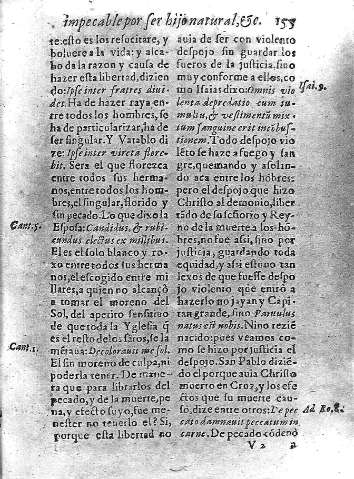 impecable por ser hijo natural, &c. 155
te: esto es los resucitare, y
boluere a la vida: y alca-
bo da la razon y causa de
hazer esta libertad, dizien
do: Ipse inter fratres diui-
det. Ha de hazer raya en-
tre todos los hombres, se
ha de particularizar, ha de
ser singular. Y Vatablo di
ze: Ipse inter vincta flore-
bit. Sera el que florezca
entre todos sus herma-
nos, entre todos los hom-
bres, el singular, florido y
sin pecado. Lo que dixo la
Cant. 5.
Esposa: Candidus, & rubi-
cundus electus ex millibus.
El es el solo blanco y ro-
xo entre todos sus herma
nos, el escogido entre mi
llares, a quien no alcançò
a tomar el moreno del
Sol, del apetito sensitivo
de que toda la Yglesia q̃
es el resto de los santos, se la
Cant. 1.
mentaua: Decolorauit me sol.
El sin moreno de culpa, ni
poderla tener. De mane-
ra que para librarlos del
pecado, y de la muerte, pe
na, y efecto suyo, fue me-
nester no tenerlo el? Si,
porque esta libertad no
auia de ser con violento
despojo sin guardar los
fueros de la justicia, sino
muy conforme a ellos, co
Isai. 9.
mo Isaias dixo: Omnis vio
lenta depredatio cum tu-
multu, & vestimentũ mix-
tum sanguine erit in cõbus-
tionem. Todo despojo vio
leto se haze a fuego y san
gre, quemando y asolan-
do aca entre los hõbres:
pero el despojo que hizo
Christo al demonio, liber
tad de su señorio y Rey-
no de la muerte a los hom-
bres, no fue assi, sino por
justicia, guardando toda
equidad, y assi estuuo tan
lexos de que fuesse despo
jo violento que entrò a
hazerlo no jayan y Capi-
tan grande, sino Paruulus
natus est nobis. Niño rezie
nacido: pues veamos co-
mo se hizo por justicia el
despojo. San Pablo dizié-
do el porque auia Christo
muerto en Cruz, y los efe
ctos que su muerte cau-
so, dize entre otros: De pec
Ad Ro. 8.
cato damnauit peccatum in
carne. De pecado cõdenò
V 2